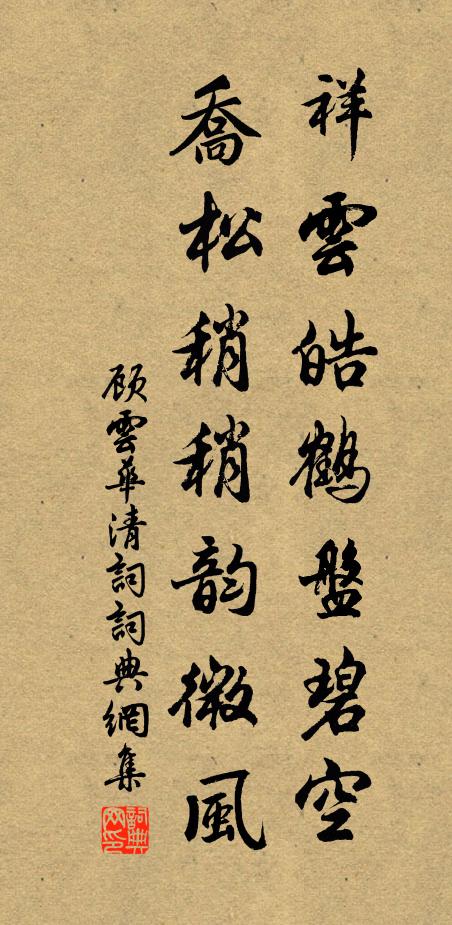 祥雲皓鶴盤碧空
喬松稍稍韵微風
顾雲華清詞詞典網集
詞典網印